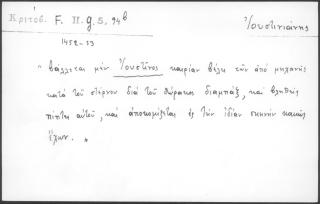 Κριτόβ. F. II. g. 5, 94b
Ἰουστινιάνης
1452-53
" βάλλεται μὲν Ἰουστῖνος καιρίαν βέλει τῶν ἀπὸ μηχανῆς
κατὰ τοῦ στέρνου διὰ τοῦ θώρακος διαμπάξ, καὶ βληθεὶς
πίπτει αὐτοῦ, καὶ ἀποκομίζεται ἐς τὴν ἰδίαν σκηνὴν κακῶς
ἔχων. "